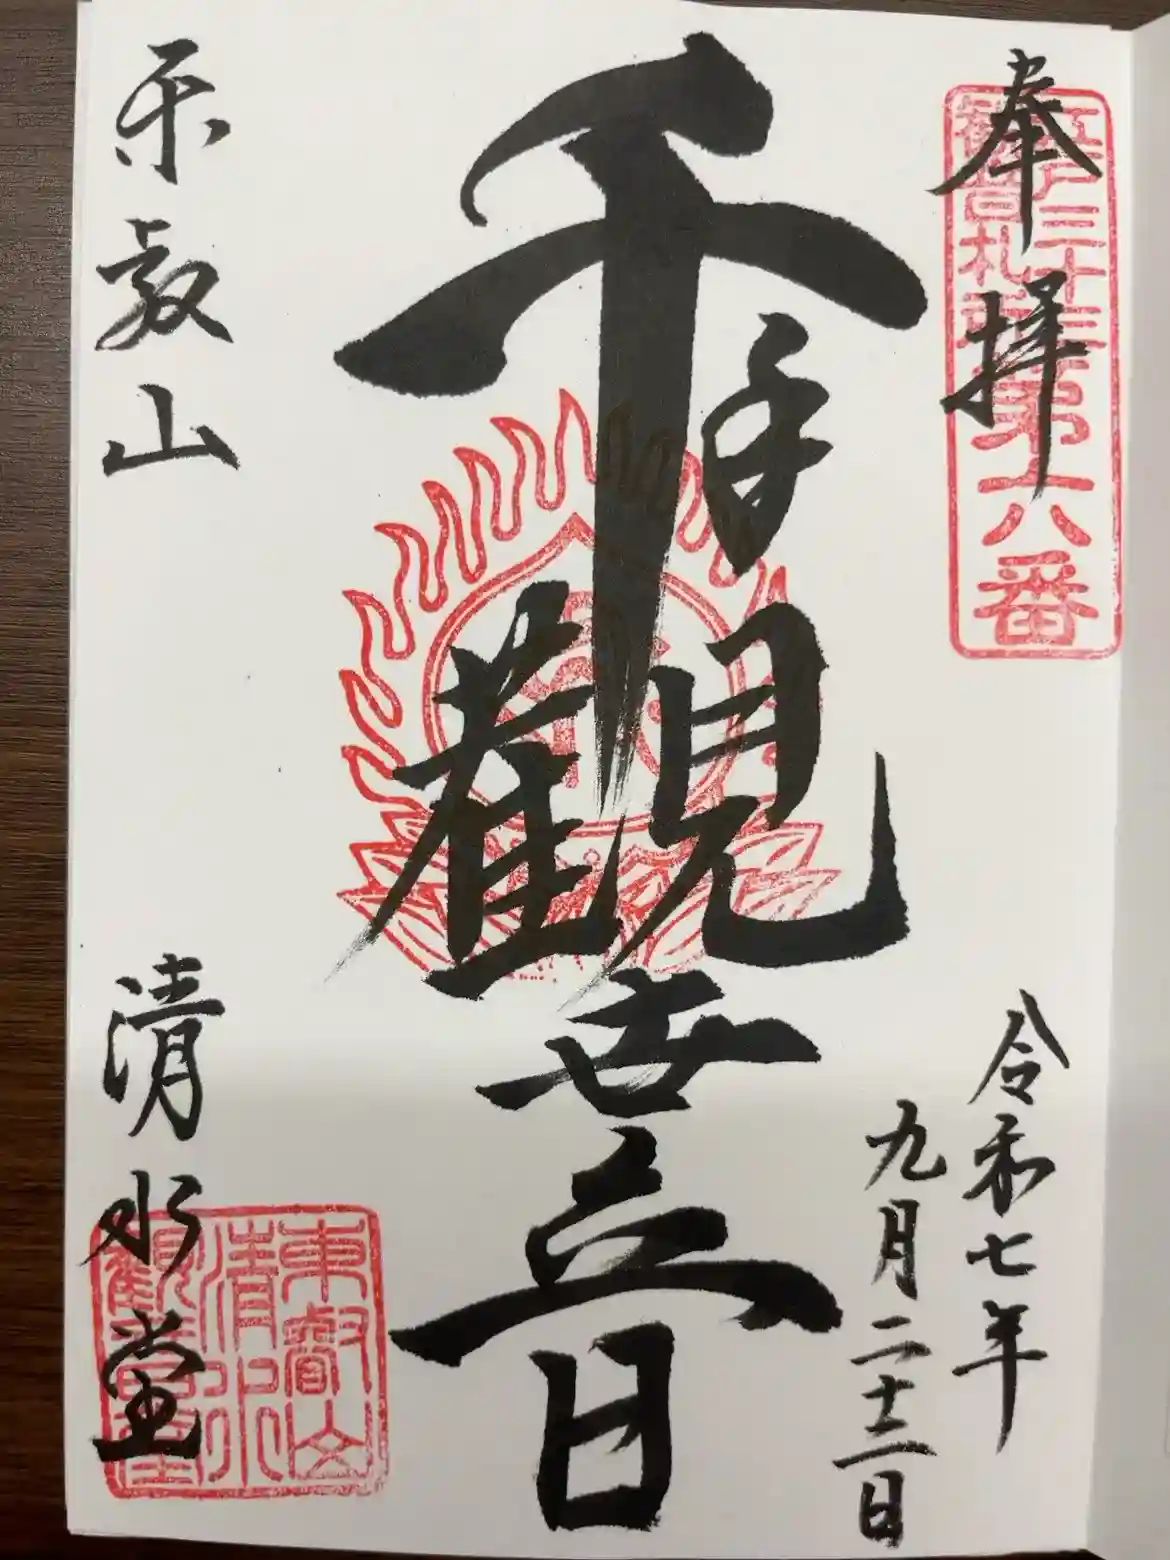 奉拝
江戸三十三
観音札所
第六番
令和七年
九月二十三日
千手觀世音
東叡山 清水堂
東叡山
清水
觀音堂